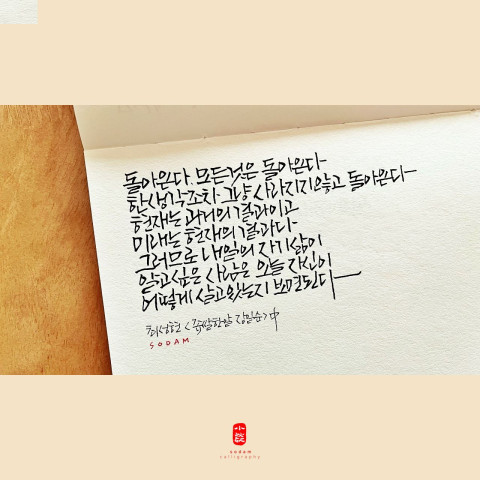 돌아온다. 모든것은 돌아온다
한 생각조차 그냥 사라지지 않고 돌아온다
현재는 과거의 결과이고
미래는 현재의 결과다
그러므로 내일의 자기 삶이
알고 싶은 사람은 오늘 자신이
어떻게 살고 있는지 보면 된다
최성현 <좁쌀한알 장일순> 中
SODAM
sodam
calligraphy